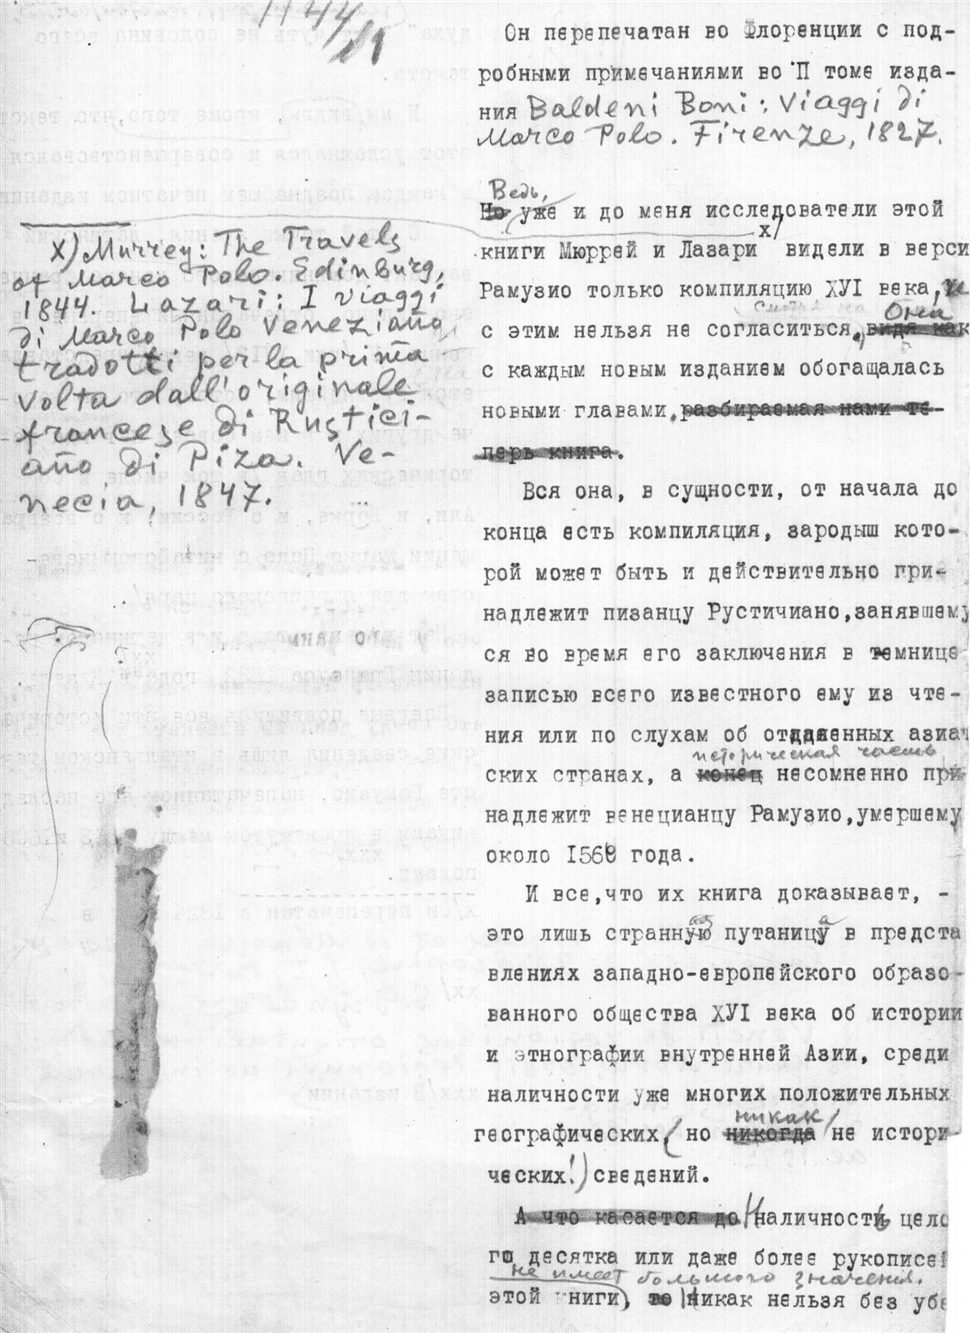 1144
21
Он перепечатан во Флоренции с под-
робными примечаниями во П томе изда-
ния Baldeni Boni: Viaggi di
Marco Polo. Firenze, 1827.
Ведь,
Но уже и до меня исследователи этой
х/
книги Мюррей и Лазари видели в верси
Рамузио только компиляцию ХУI века,
с этим нельзя не согласиться, видя как
Она
с каждым новым изданием обогащалась
новыми главами, разбираемая нами те-
перь книга.
Вся она, в сущности, от начала до
конца есть компиляция, зародыш кото-
рой может быть и действительно при-
надлежит пизанцу Рустичиано,занявшему
ся во время его заключения в темнице
записью всего известного ему из чте-
ния или по слухам об отдаленных азиат
историческая часть
ских странах, а конец несомненно при-
надлежит венецианцу Рамузио,умершему
около 1560 года.
И все,что их книга доказывает, -
это лишь странную путаницу в предста
ая а
влениях западно-европейского образо-
ванного общества ХУI века об истории
и этнографии внутренней Азии, среди
наличности уже многих положительных
никак
географических (но никогда не истори-
ческих!) сведений.
А что касается до Наличность цело
го десятка или даже более рукописей
не имеет большого значения.
этой книги, то Никак нельзя без убе
х) Murrey: The Travels
of Marco Polo. Edinburg,
1844. Lazari: I viaggi
di Marco Polo Veneziano,
tradotti per la prima
volta dall'originale
francese di Rustici-
ano di Piza. Ve-
necia, 1847.